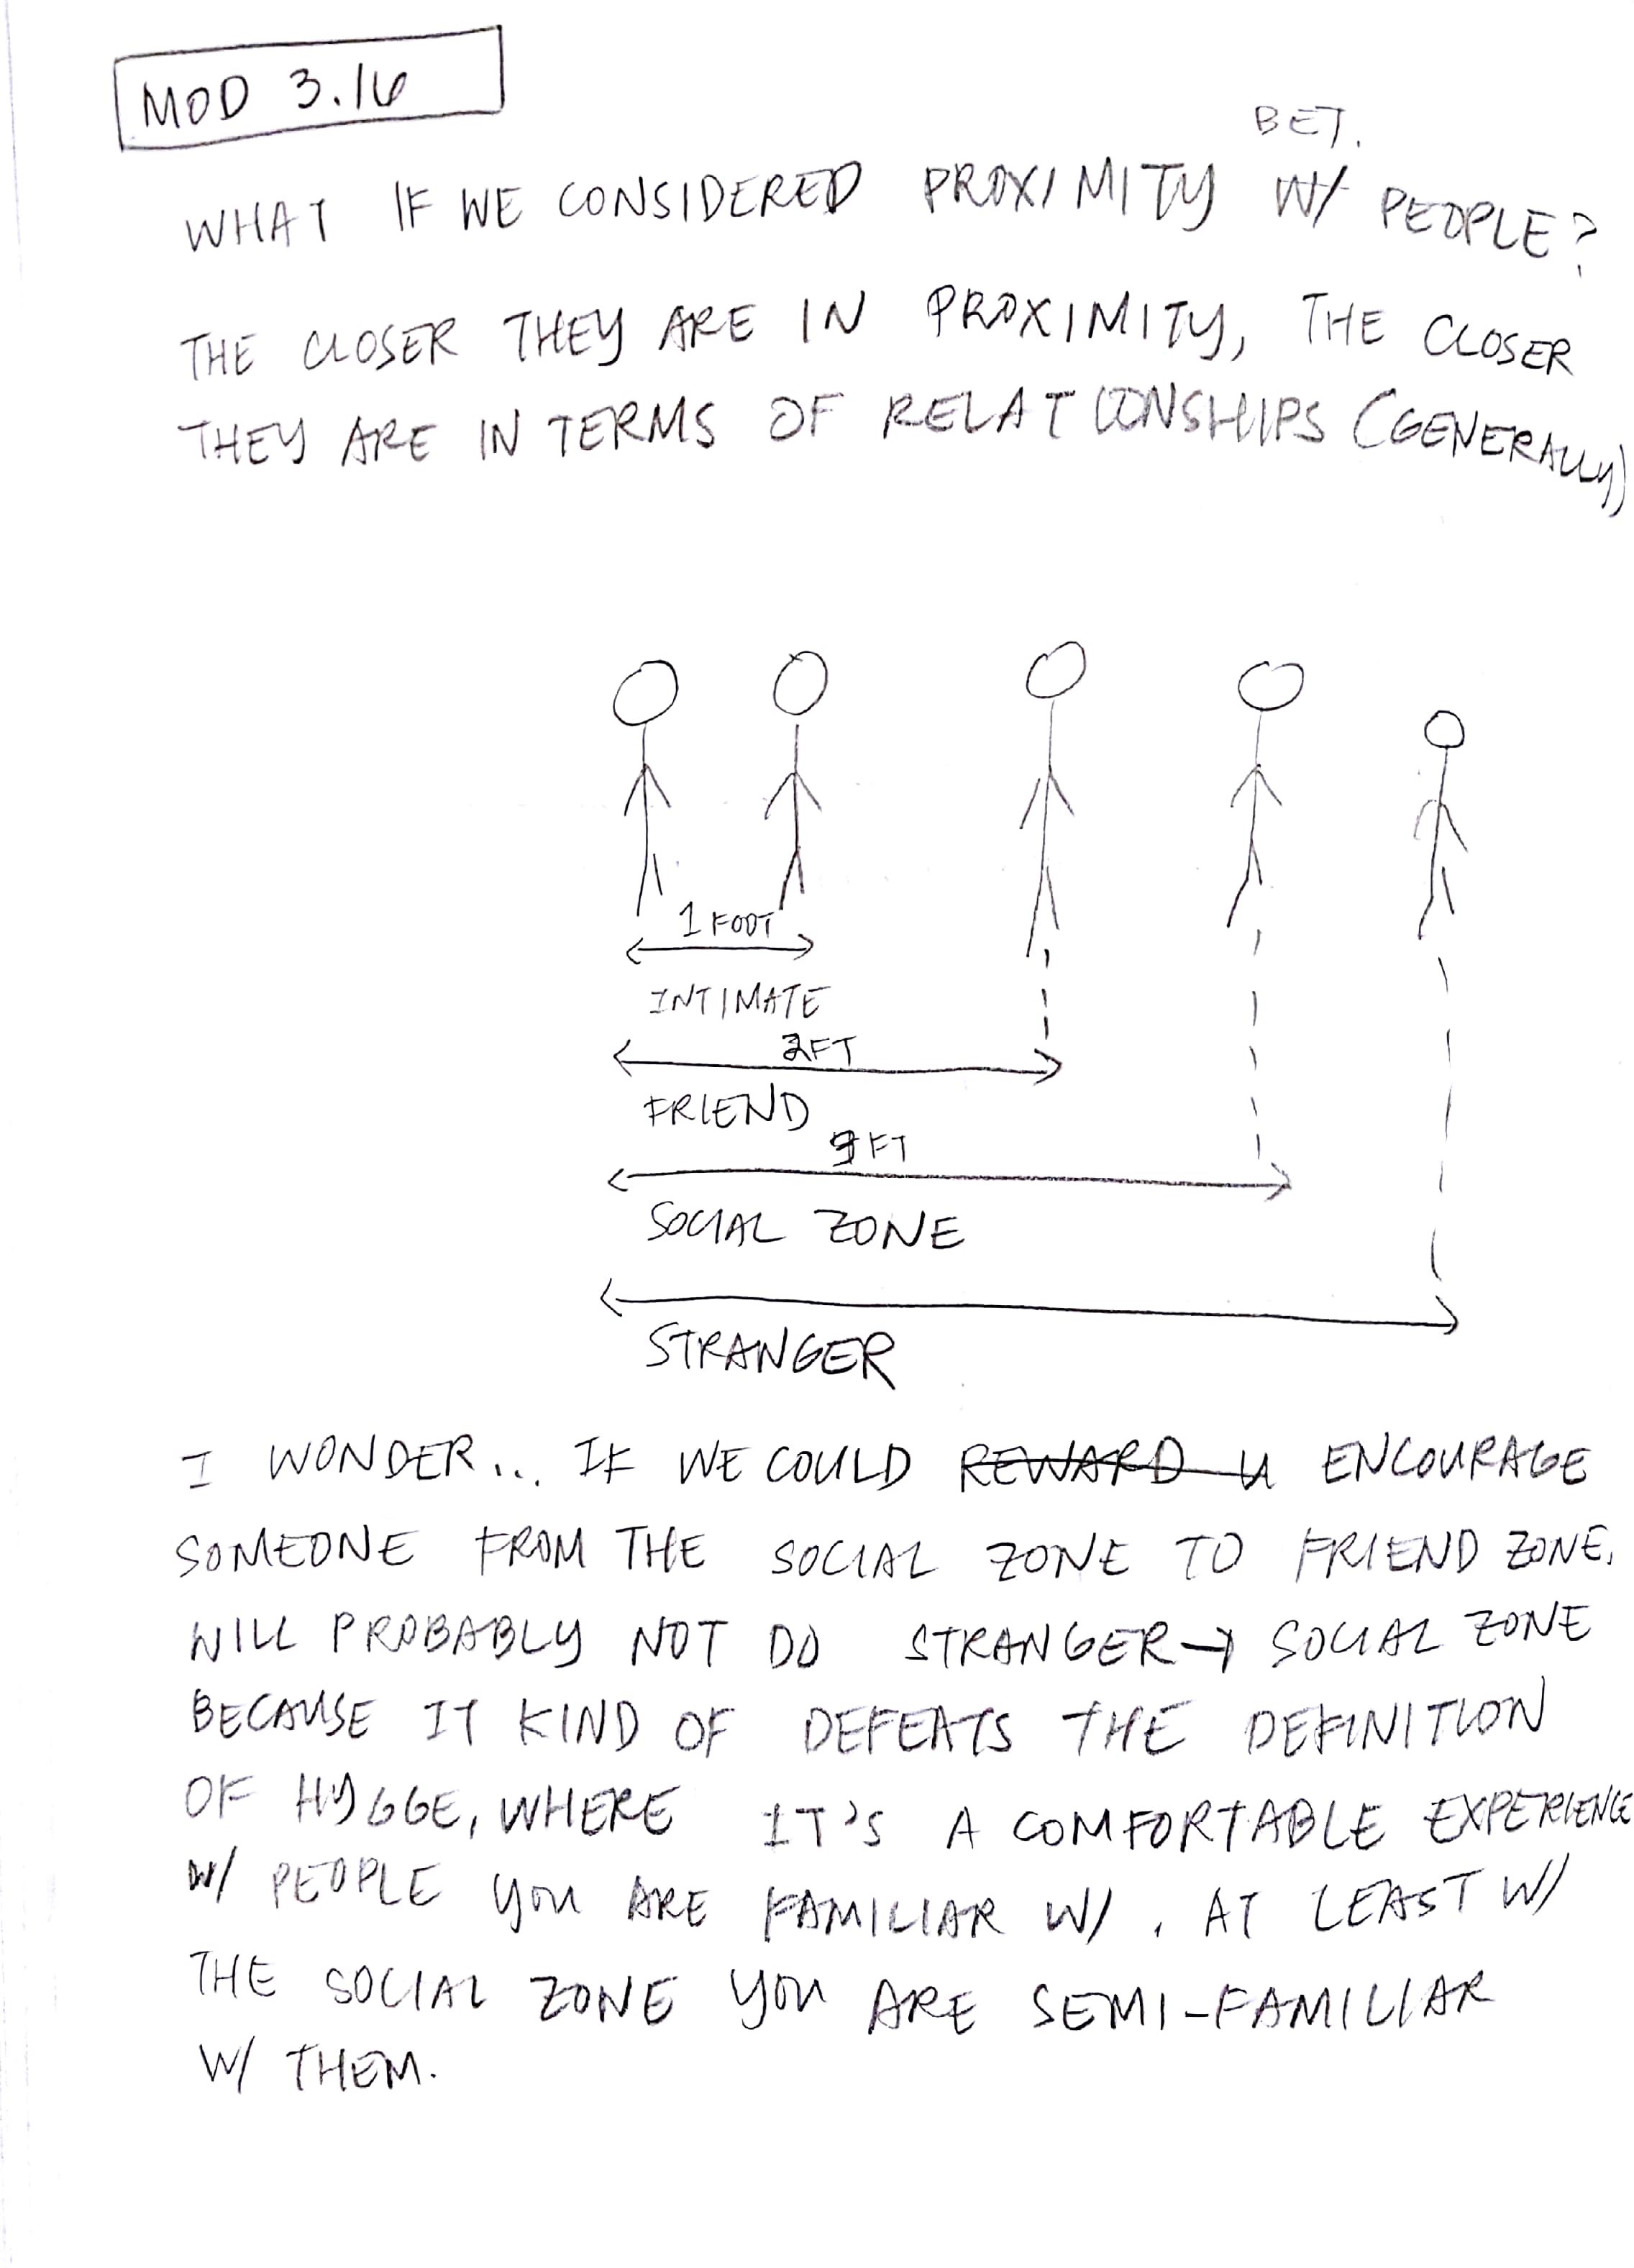 MOD 3.16
BET.
WHAT IF WE CONSIDERED PROXIMITY W/ PEOPLE?
THE CLOSER THEY ARE IN PROXIMITY, THE CLOSER
THEY ARE IN TERMS OF RELATIONSHIPS (GENERALLY)
1 FOOT
INTIMATE
FT
FRIEND
FT
SOCIAL ZONE
STRANGER
I WONDER... IF WE COULD REWARD U ENCOURAGE
SOMEONE FROM THE SOCIAL ZONE TO FRIEND ZONE.
WILL PROBABLY NOT DO STRANGER → SOCIAL ZONE
BECAUSE IT KIND OF DEFEATS THE DEFINITION
OF HYGGE, WHERE IT'S A COMFORTABLE EXPERIENCE
W/ PEOPLE YOU ARE FAMILIAR W/. AT LEAST W/
THE SOCIAL ZONE YOU ARE SEMI-FAMILIAR
W/ THEM.